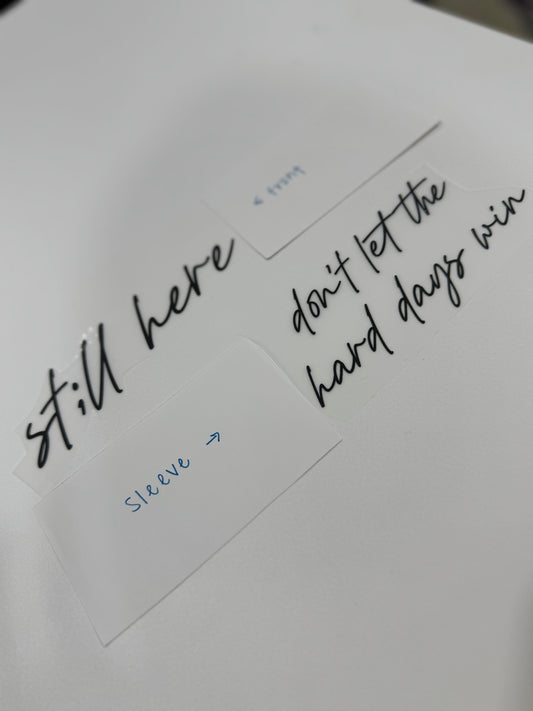 ← front
st;ll here
don't let the
hard days win
sleeve →